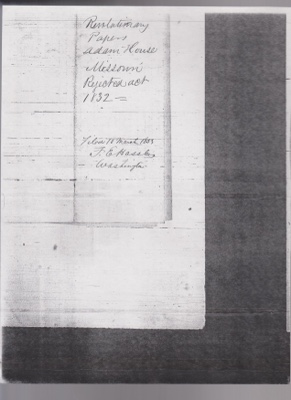 Revolutionary
Papers
Adam House
Missouri
Rejected act
1832 =
March
Washington